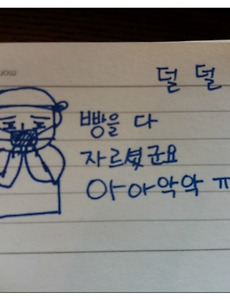 덜 덜
빵을 다
자르셨군요
아아악악 ㅠ